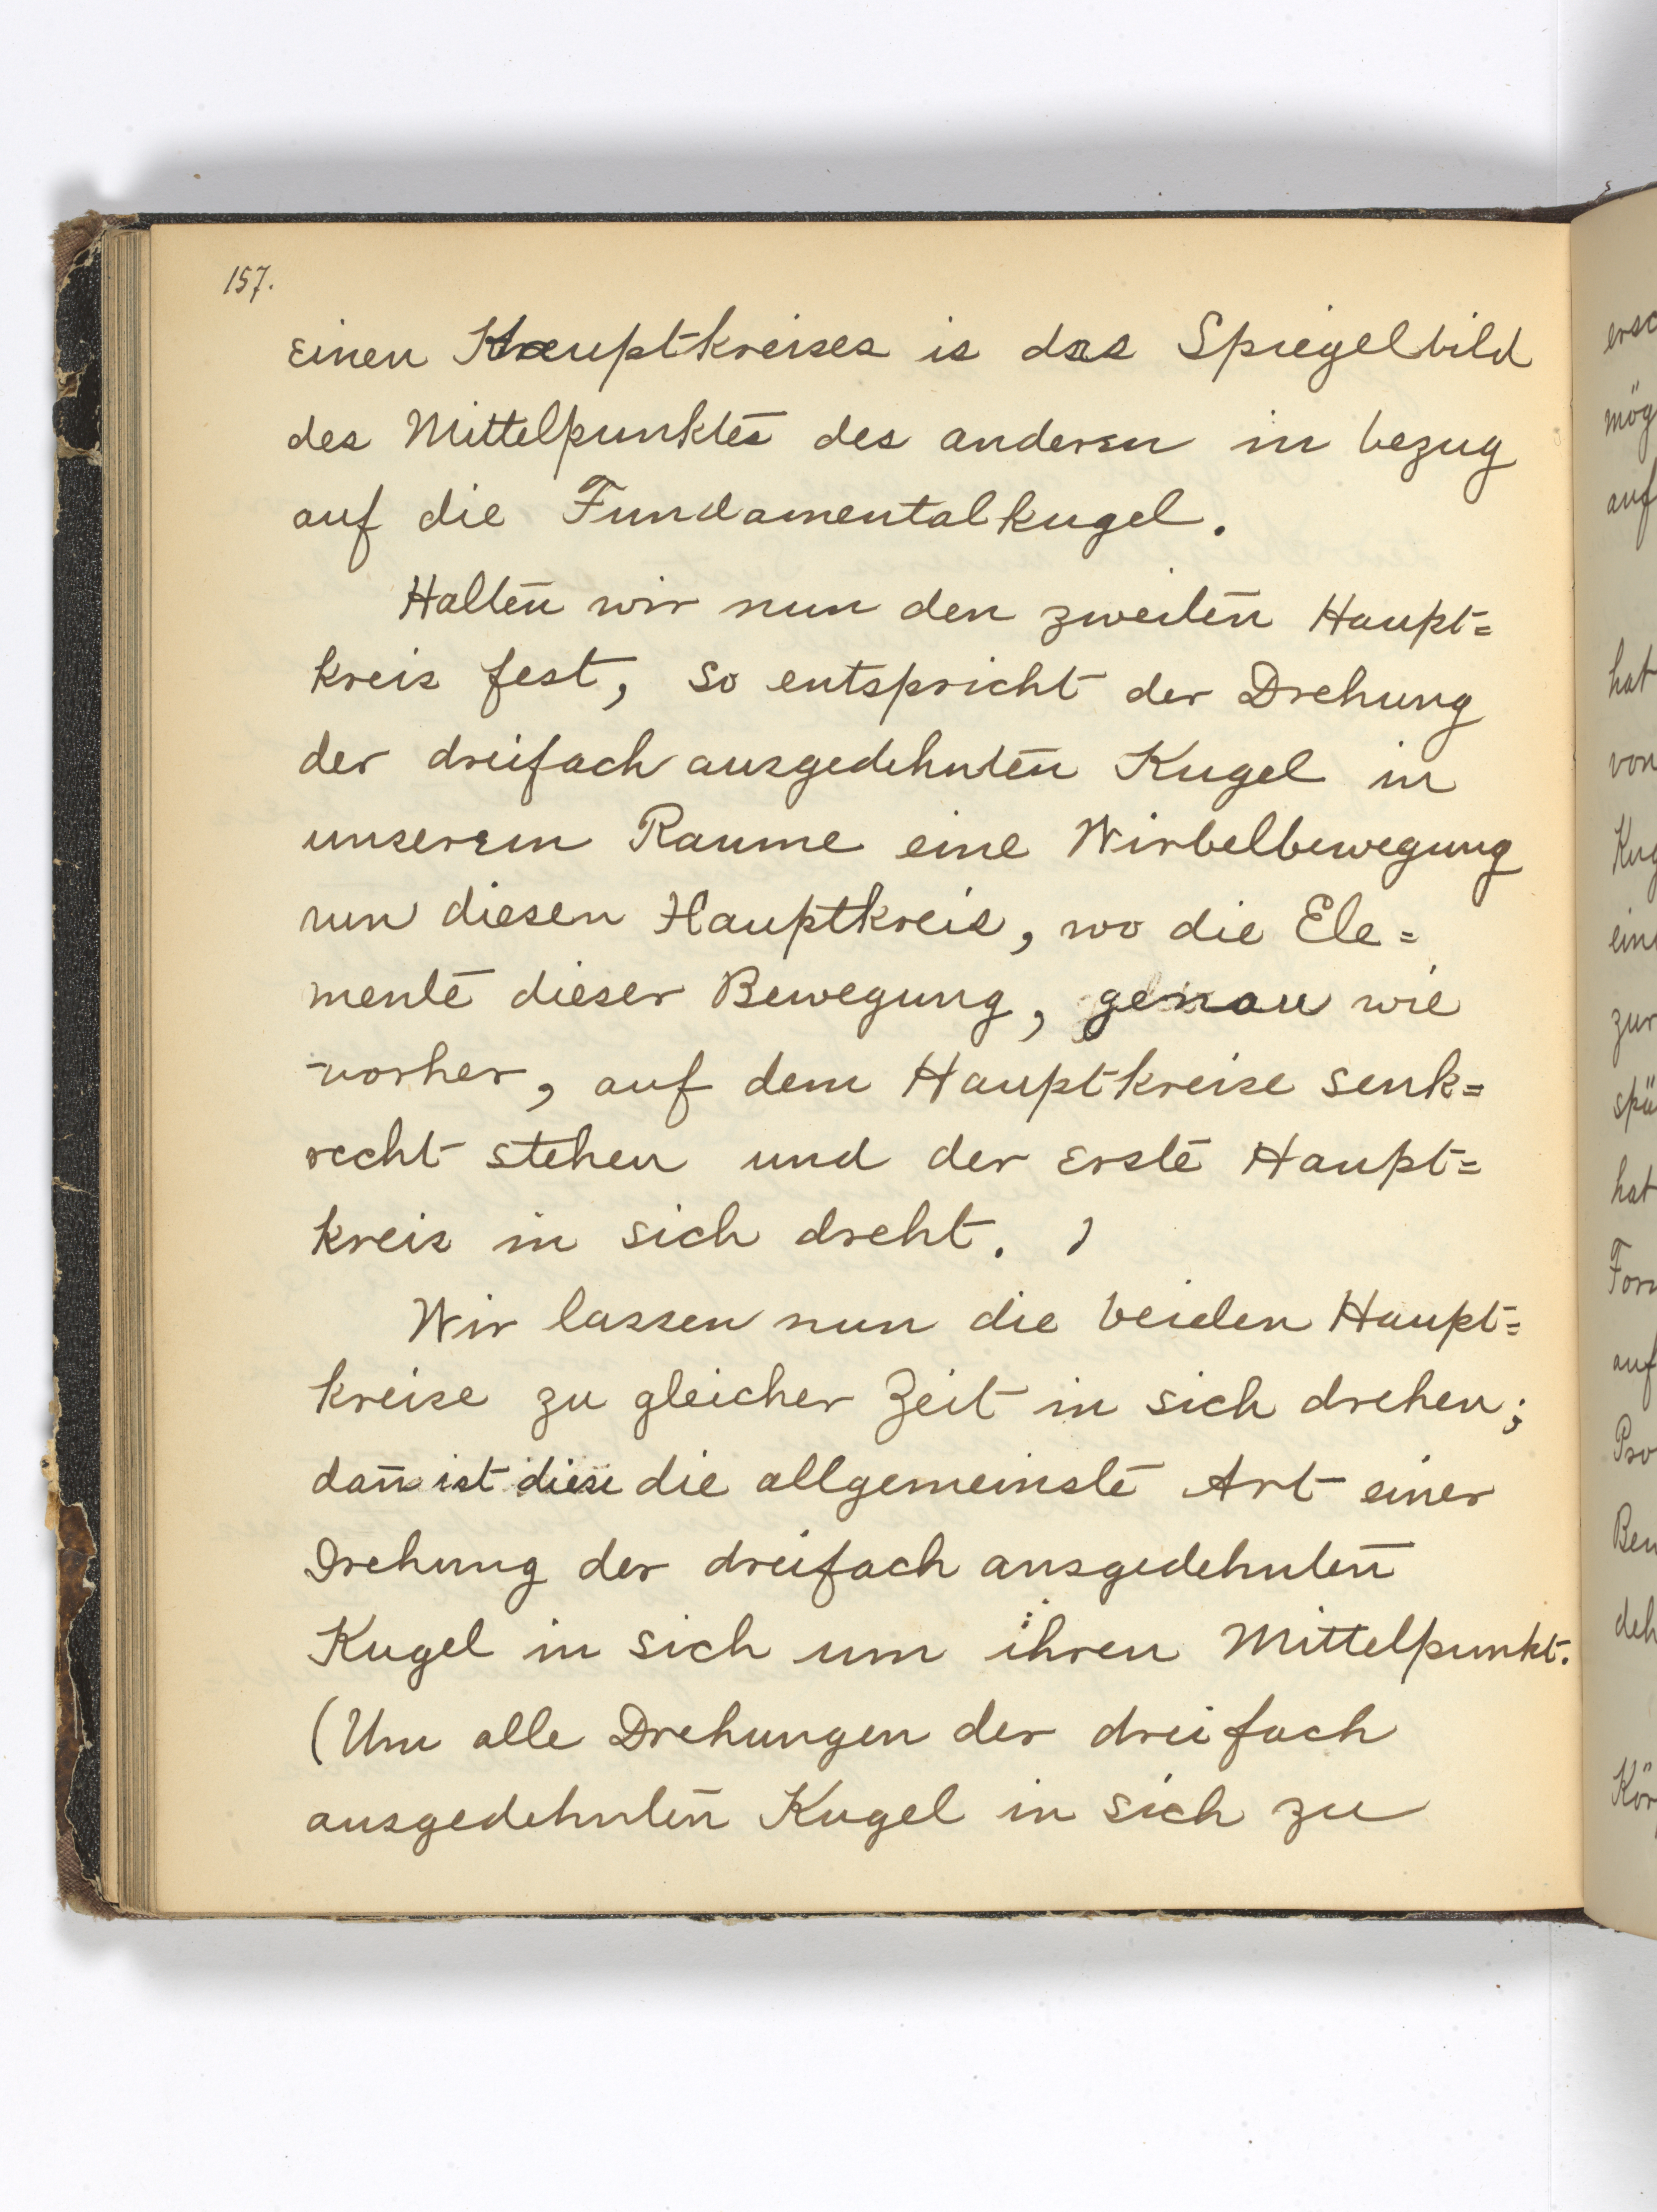 157.
einen Hauptkreises is das Spiegelbild
des Mittelpunktes des anderen in bezug
auf die Fundamentalkugel.
Halten wir nun den zweiten Haupt=
kreis fest, so entspricht der Drehung
der dreifach ausgedehnten Kugel in
unserem Raume eine Wirbelbewegung
um diesen Hauptkreis, wo die Ele=
mente dieser Bewegung, genau wie
vorher, auf dem Hauptkreise senk=
recht stehen und der erste Haupt=
kreis in sich dreht.
Wir lassen nun die beiden Haupt=
kreise zu gleicher Zeit in sich drehen;
dan̄ ist diese die allgemeinste Art einer
Drehung der dreifach ausgedehnten
Kugel in sich um ihren Mittelpunkt.
(Um alle Drehungen der dreifach
ausgedehnten Kugel in sich zu
mög
auf
hat
von
Kug
ein
zur
spü
hat
auf
deh
Kör